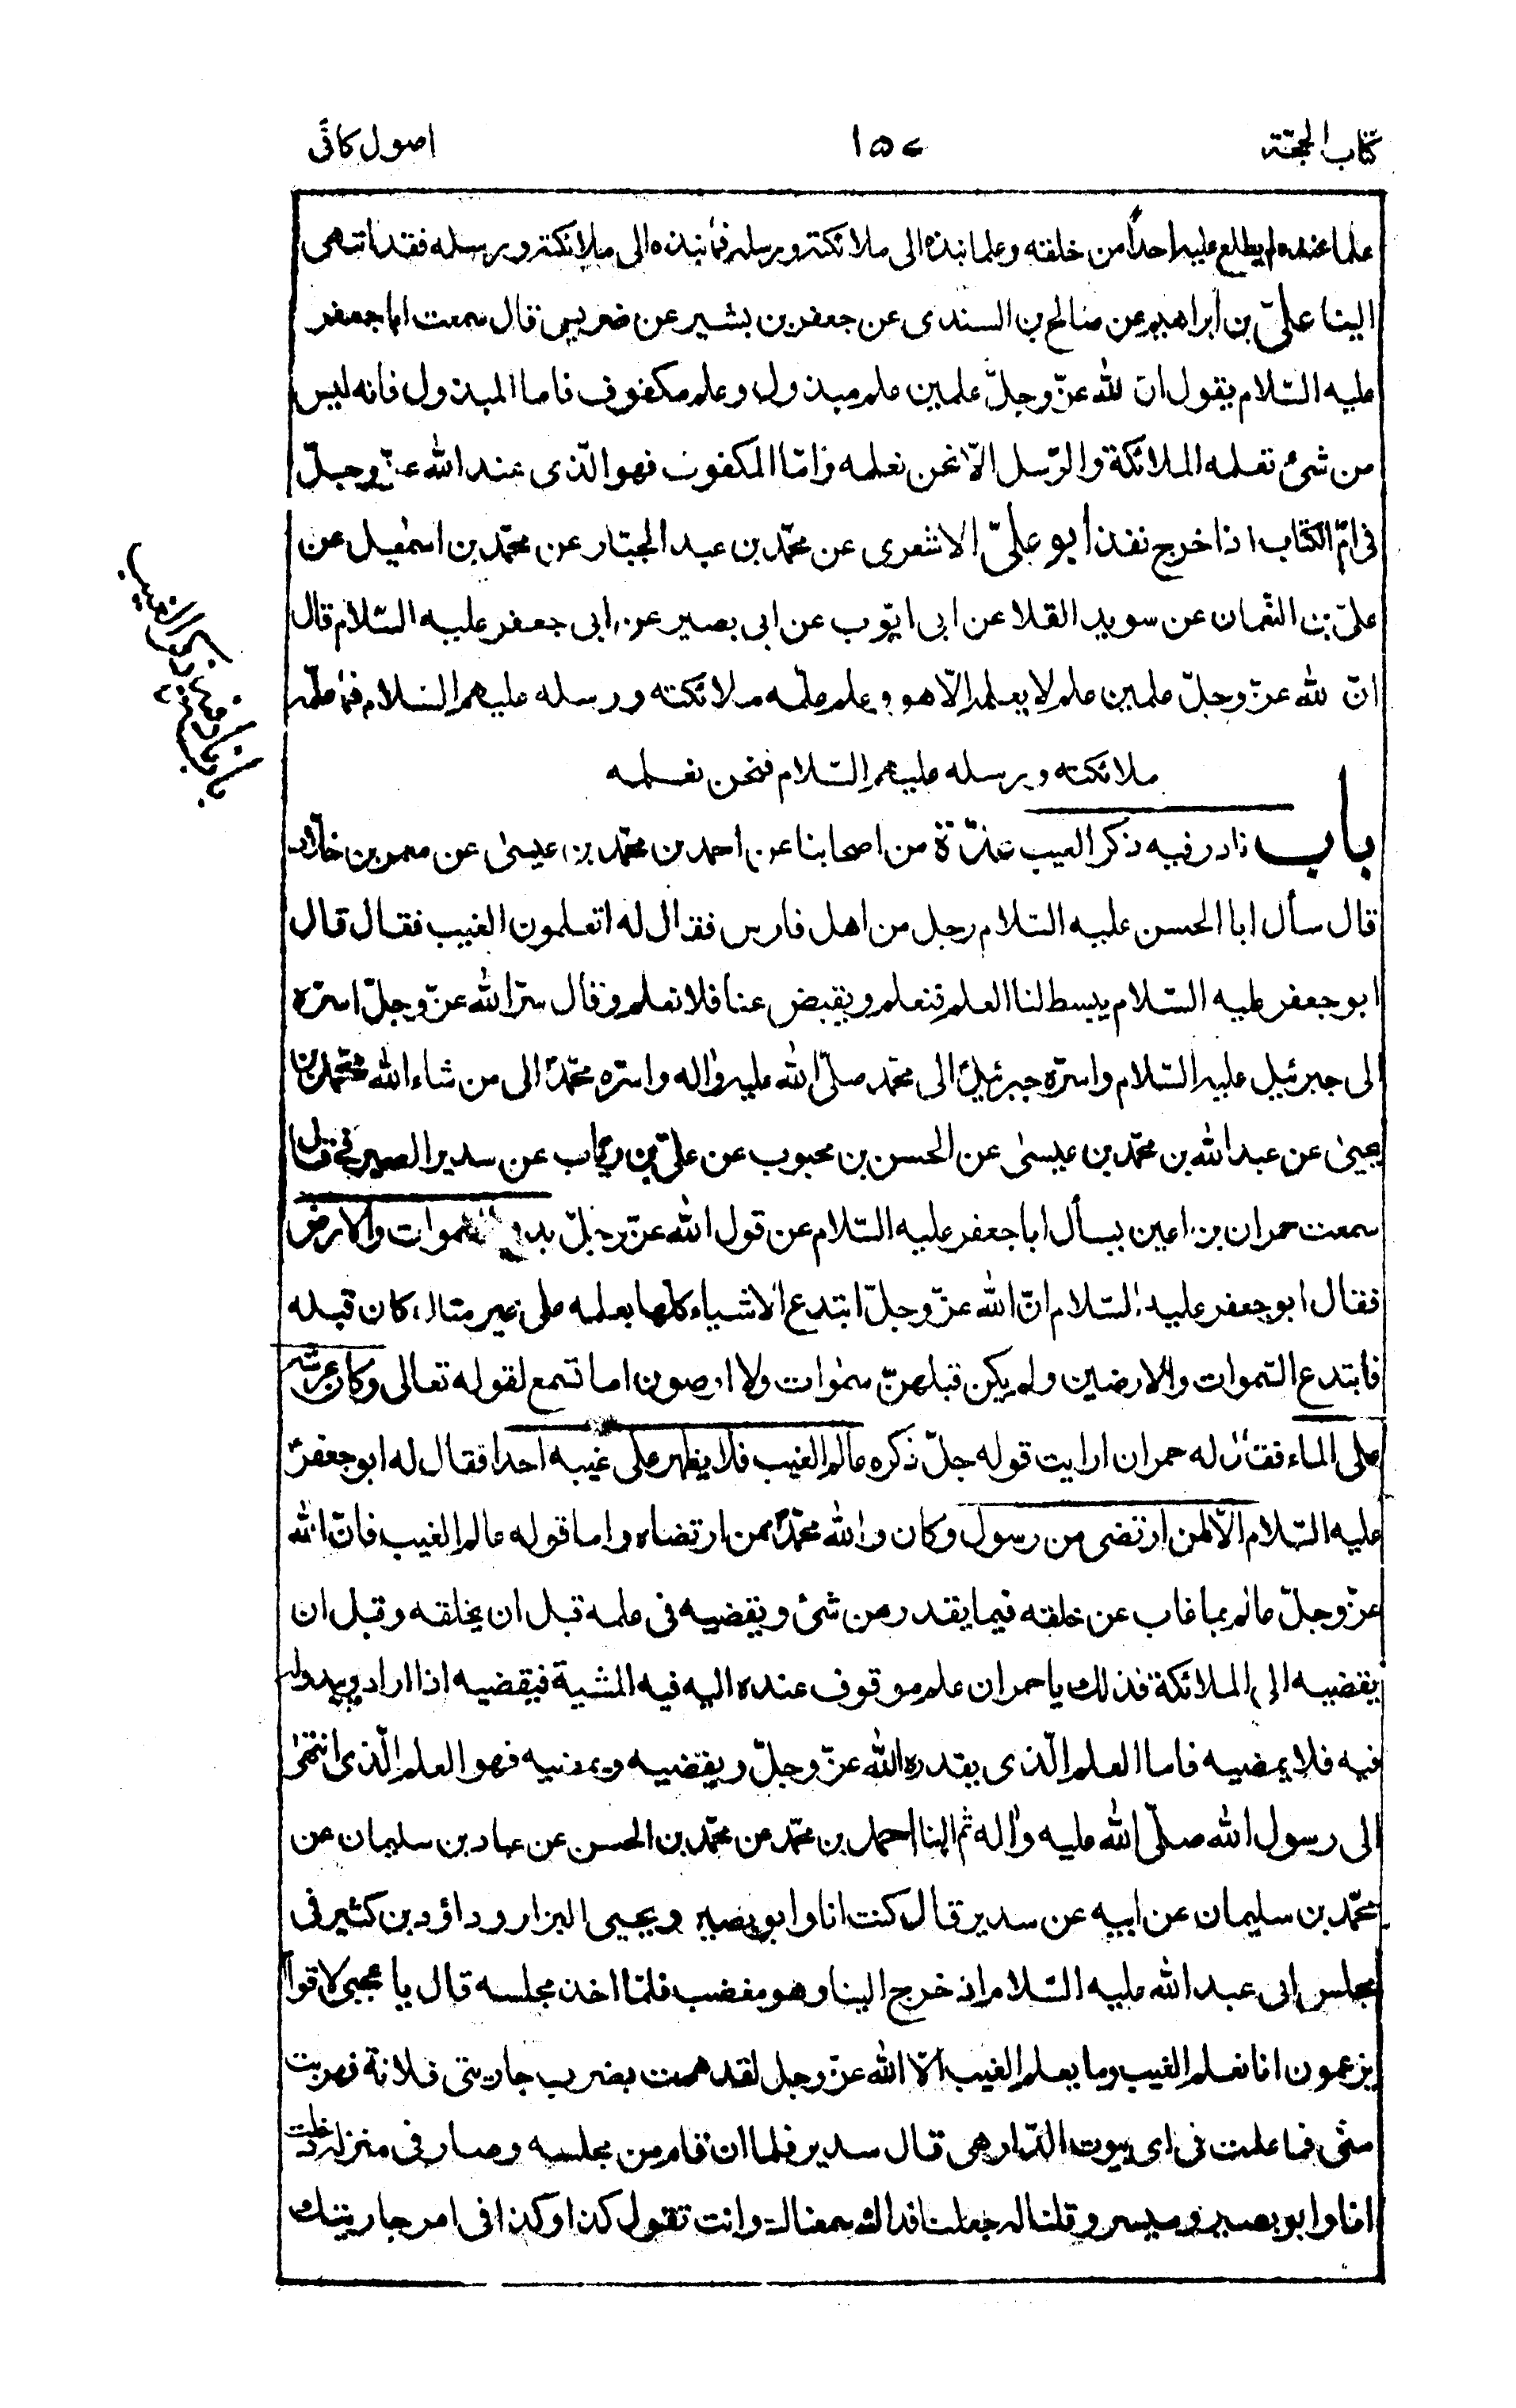 كتاب الحجّة
١٥٧
اصول كافى
علما عنده لم يطلع عليه احداً من خلقه وعلما نبذه الى ملائكته ورسله فما نبذه الى ملائكته ورسله فقد انتهى
الينا علىّ بن ابراهيم عن صالح بن السندى عن جعفر بن بشير عن ضريس قال سمعت ابا جعفر
عليه السّلام يقول انّ لله عزّ وجلّ علمين علم مبذول وعلم مكفوف فاما المبذول فانه ليس
من شئ تعلمه الملائكة والرّسل الّا نحن نعلمه وامّا المكفوف فهو الّذى عند الله عزّ وجلّ
فى امّ الكتاب اذا خرج نفذ أبو علىّ الاشعرى عن محمّد بن عبد الجبّار عن محمّد بن اسمٰعيل عن
علىّ بن النّعمان عن سويد القلا عن ابى ايّوب عن ابى بصير عن ابى جعفر عليه السّلام قال
انّ لله عزّ وجلّ علمين علم لا يعلمه الّا هو وعلم علّمه ملائكته ورسله عليهم السّلام فما علّمه
ملائكته ورسله عليهم السّلام فنحن نعلمه
باب نادر فيه ذكر الغيب عدّة من اصحابنا عن احمد بن محمّد بن عيسىٰ عن معمر بن خلّاد
قال سأل ابا الحسن عليه السّلام رجل من اهل فارس فقال له اتعلمون الغيب فقال قال
ابو جعفر عليه السّلام يبسط لنا العلم فنعلم ويقبض عنا فلا نعلم وقال سرّ الله عزّ وجلّ اسرّه
الى جبرئيل عليه السّلام واسرّه جبرئيل الى محمّد صلّى الله عليه واٰله واسرّه محمّد الى من شاء الله محمّد بن
يحيىٰ عن عبد الله بن محمّد بن عيسىٰ عن الحسن بن محبوب عن علىّ بن رئاب عن سدير الصيرفى قال
سمعت حمران بن اعين يسأل ابا جعفر عليه السّلام عن قول الله عزّ وجلّ بديع السّموات والارض
فقال ابو جعفر عليه السّلام انّ الله عزّ وجلّ ابتدع الاشياء كلّها بعلمه على غير مثال كان قبله
فابتدع السّموات والارضين ولم يكن قبلهنّ سمٰوات ولا ارضون اما تسمع لقوله تعالى وكان عرشه
على الماء فقال له حمران ارايت قوله جلّ ذكره عالم الغيب فلا يظهر على غيبه احدا فقال له ابو جعفر
عليه السّلام الّا من ارتضى من رسول وكان والله محمّد ممن ارتضاه واما قوله عالم الغيب فانّ الله
عزّ وجلّ عالم بما غاب عن خلقه فيما يقدر من شئ ويقضيه فى علمه قبل ان يخلقه وقبل ان
يقضيه الى الملائكة فذلك يا حمران علم موقوف عنده اليه فيه المشية فيقضيه اذا اراد ويبدو له
فيه فلا يمضيه فاما العلم الّذى يقدره الله عزّ وجلّ ويقضيه ويمضيه فهو العلم الّذى انتهىٰ
الى رسول الله صلّى الله عليه واٰله ثم الينا احمد بن محمّد عن محمّد بن الحسن عن عباد بن سليمان عن
محمّد بن سليمان عن ابيه عن سدير قال كنت انا وابو بصير ويحيى البزار وداؤد بن كثير فى
مجلس ابى عبد الله عليه السّلام اذ خرج الينا وهو مغضب فلمّا اخذ مجلسه قال يا عجبى لاقوام
يزعمون انا نعلم الغيب وما يعلم الغيب الّا الله عزّ وجل لقد هممت بضرب جاريتى فلانة فهربت
منّى فما علمت فى اى بيوت الدّار هى قال سدير فلما ان قام من مجلسه وصار فى منزله دخلت
انا وابو بصير وميسر وقلنا له جعلنا فداك سمعناك وانت تقول كذا وكذا فى امر جاريتك
باب نادر فيه ذكر الغيب